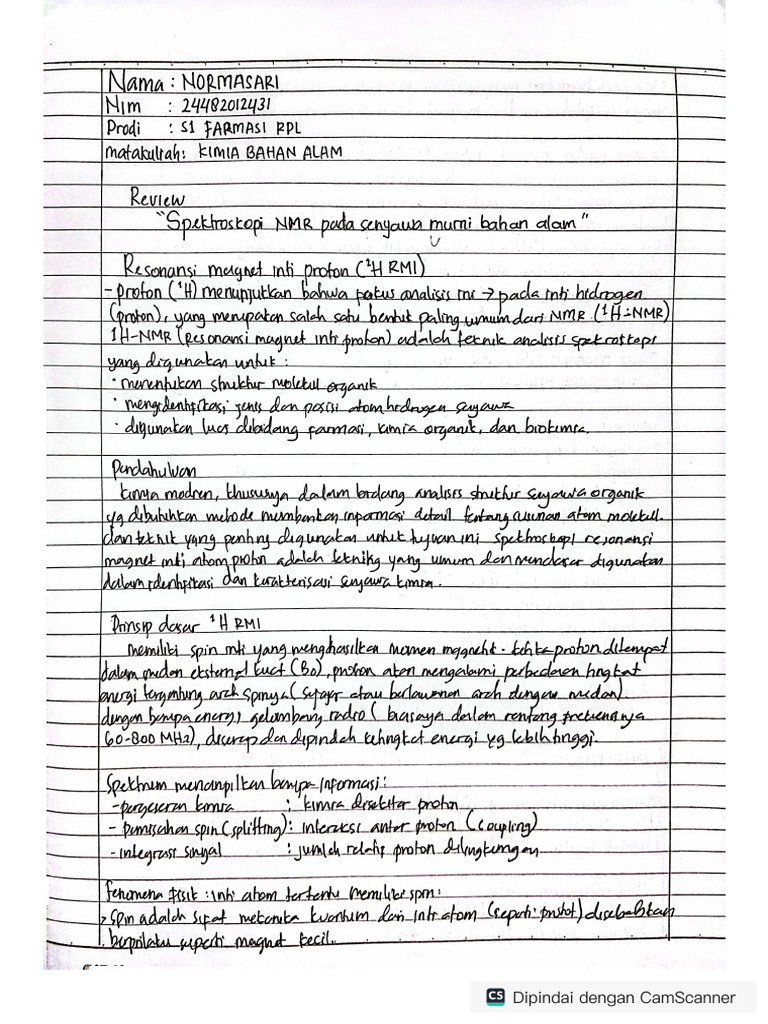 Nama : NORMASARI
Nim : 24482012431
Prodi : S1 FARMASI RPL
matakuliah : KIMIA BAHAN ALAM
Review
"Spektroskopi NMR pada senyawa murni bahan alam"
Resonansi magnet inti proton (¹H RMI)
- proton (¹H) menunjukkan bahwa fokus analisis ini → pada inti hidrogen
(proton), yang merupakan salah satu bentuk paling umum dari NMR (¹H-NMR)
1H-NMR (resonansi magnet inti proton) adalah teknik analisis spektroskopi
yang digunakan untuk :
· menentukan struktur molekul organik
· mengidentifikasi jenis dan posisi atom hidrogen senyawa
· digunakan luas dibidang farmasi, kimia organik, dan biokimia.
Pendahuluan
kimia modren, khususnya dalam bidang analisis struktur senyawa organik
yg dibutuhkan metode memberikan informasi detail tentang susunan atom molekul.
dan teknik yang penting digunakan untuk tujuan ini spektroskopi resonansi
magnet inti atom proton adalah teknik yang umum dan mendasar digunakan
dalam identifikasi dan karakterisasi senyawa kimia.
Prinsip dasar ¹H RMI
memiliki spin inti yang menghasilkan momen magnetit. ketika proton ditempat
dalam medan eksternal kuat (Bo), proton akan mengalami perbedaan tingkat
energi tergantung arah spinya (sejajar atau berlawanan arah dengan medan)
dengan berupa energi gelombang radio ( biasaya dalam rentang frekuensinya
60-800 MHz), diserap dan dipindah ketingkat energi yg lebih tinggi.
Spektrum menampilkan berupa informasi :
- pergeseran kimia : kimia disekitar proton
- pemisahan spin (splitting) : interaksi antar proton (coupling)
- integrasi sinyal : jumlah relatif proton dilingkungan
fenomena fisik : inti atom tertentu memiliki spin :
> spin adalah sifat mekanika kuantum dari inti atom (seperti ) disebabkan
berprilaku seperti magnet kecil.
CS Dipindai dengan CamScanner